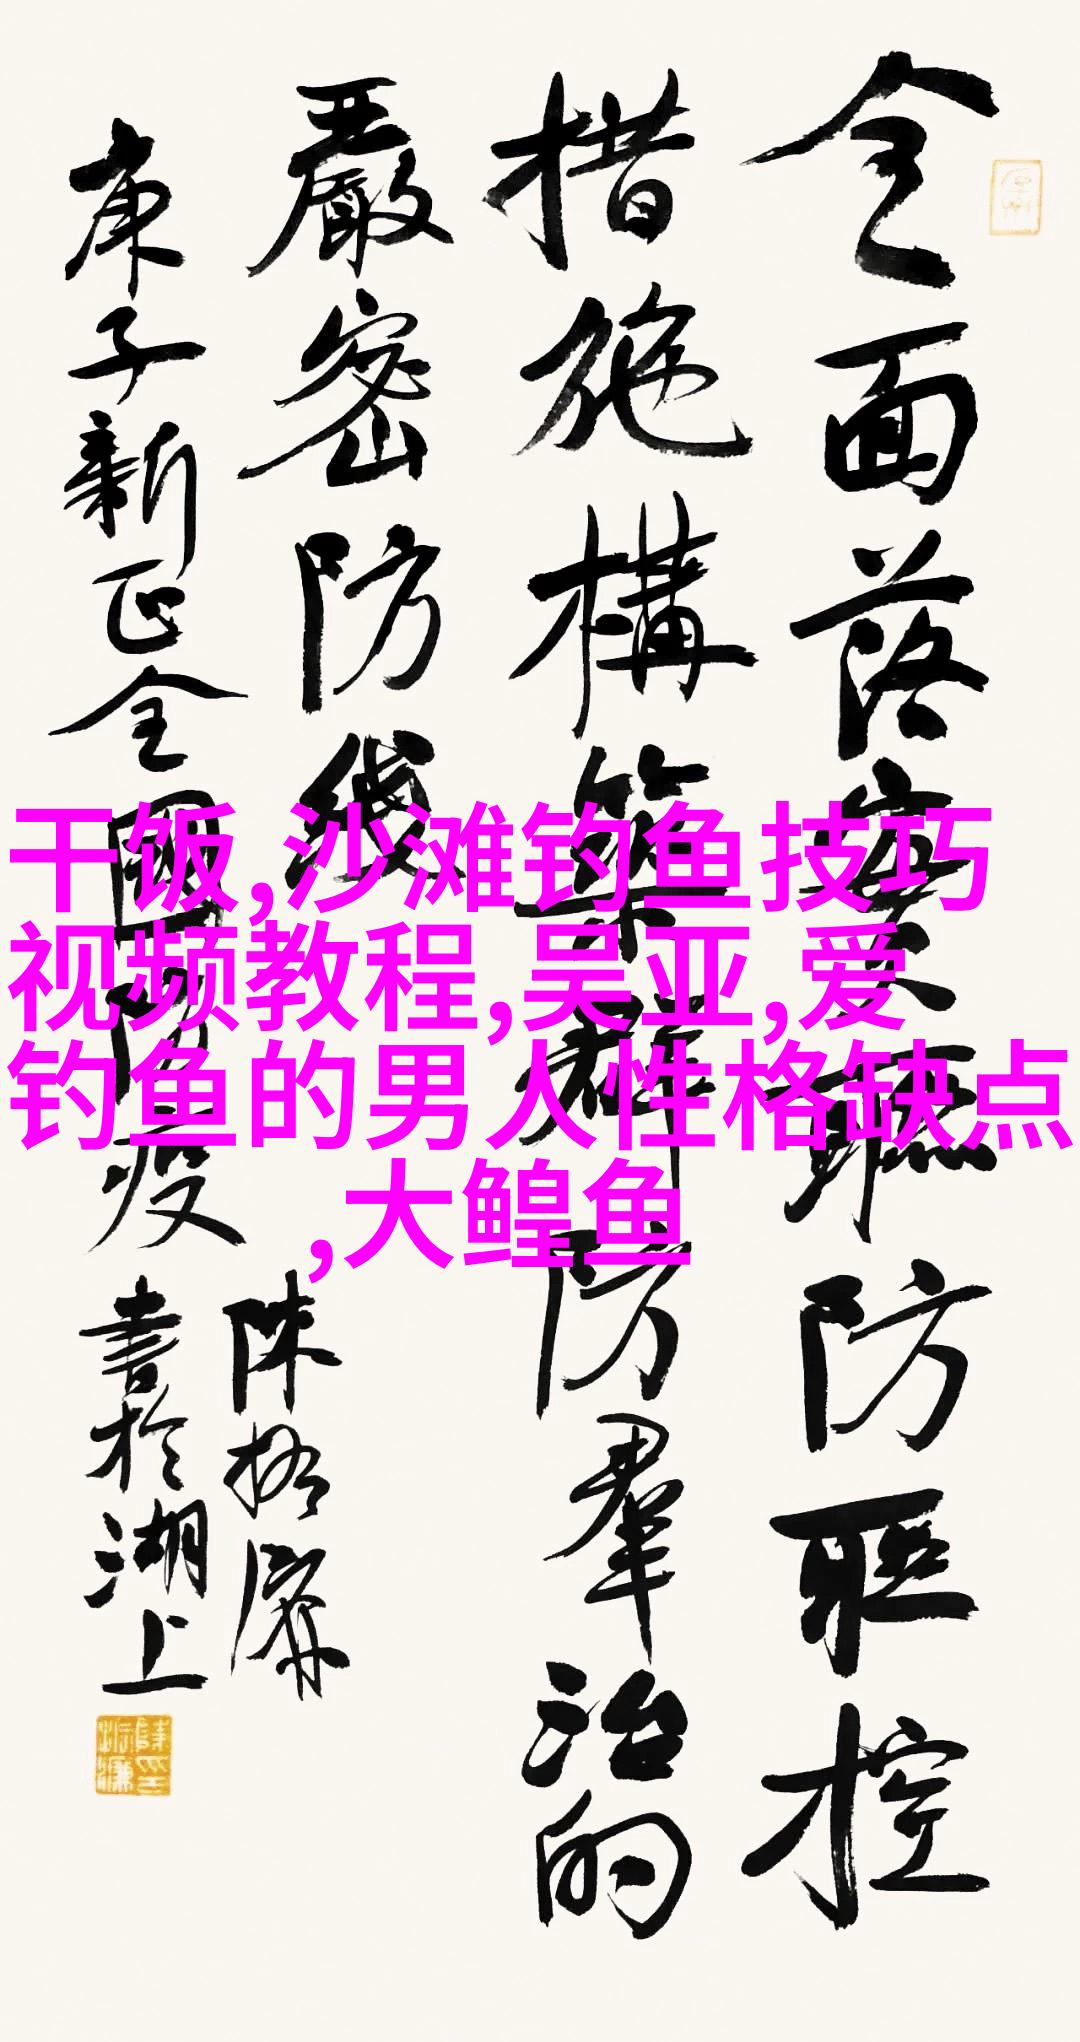 全面落实联防联控
措施構築群防羣治的
嚴密防线
庚子新正全國防疫
陳
書於湖上
干饭,沙滩钓鱼技巧
视频教程,吴亚,爱
钓鱼的男人性格缺点
,大鳇鱼